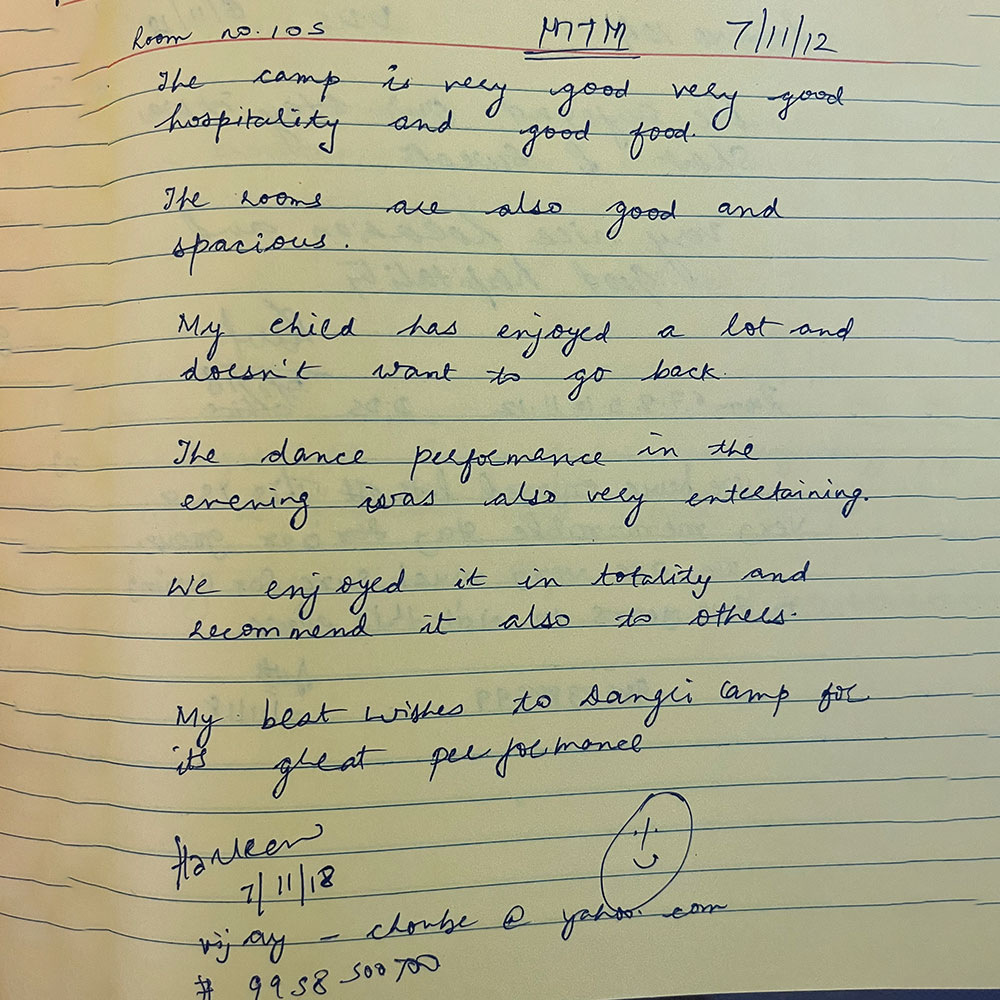 Room no. 105 MTM 7/11/12
The camp is very good very good
hospitality and good food.
The rooms are also good and
spacious.
My child has enjoyed a lot and
doesn't want to go back.
The dance performance in the
evening was also very entertaining.
We enjoyed it in totality and
recommend it also to others.
My best wishes to Dangri Camp for
its great performance
7/11/18
vijay - choube @ yahoo.com
# 9958 500700